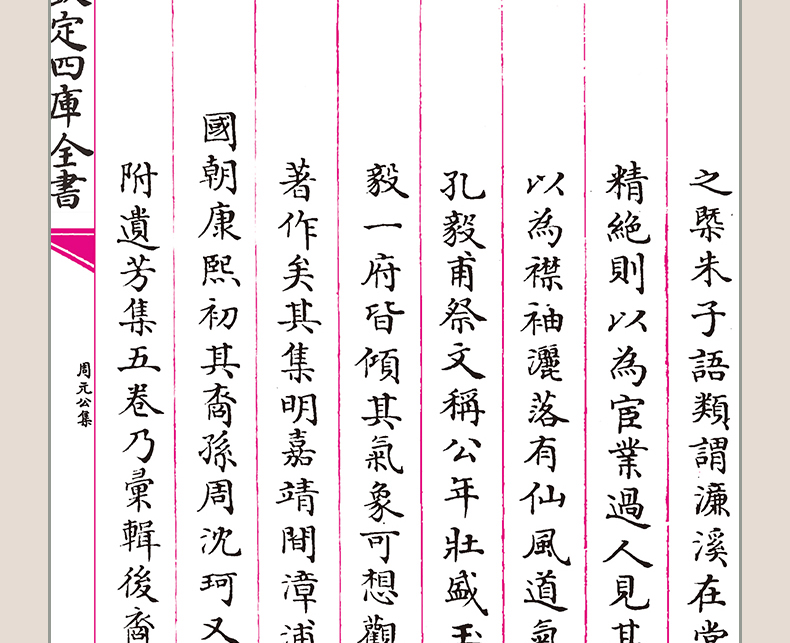 之槩朱子語類謂濂溪在當
精絶則以為宦業過人見其
以為襟袖灑落有仙風道氣
孔毅甫祭文稱公年壯盛玉
毅一府皆傾其氣象可想觀
著作矣其集明嘉靖間漳浦
國朝康熙初其裔孫周沈珂又
附遺芳集五卷乃彙輯後裔
欽定四庫全書
周元公集